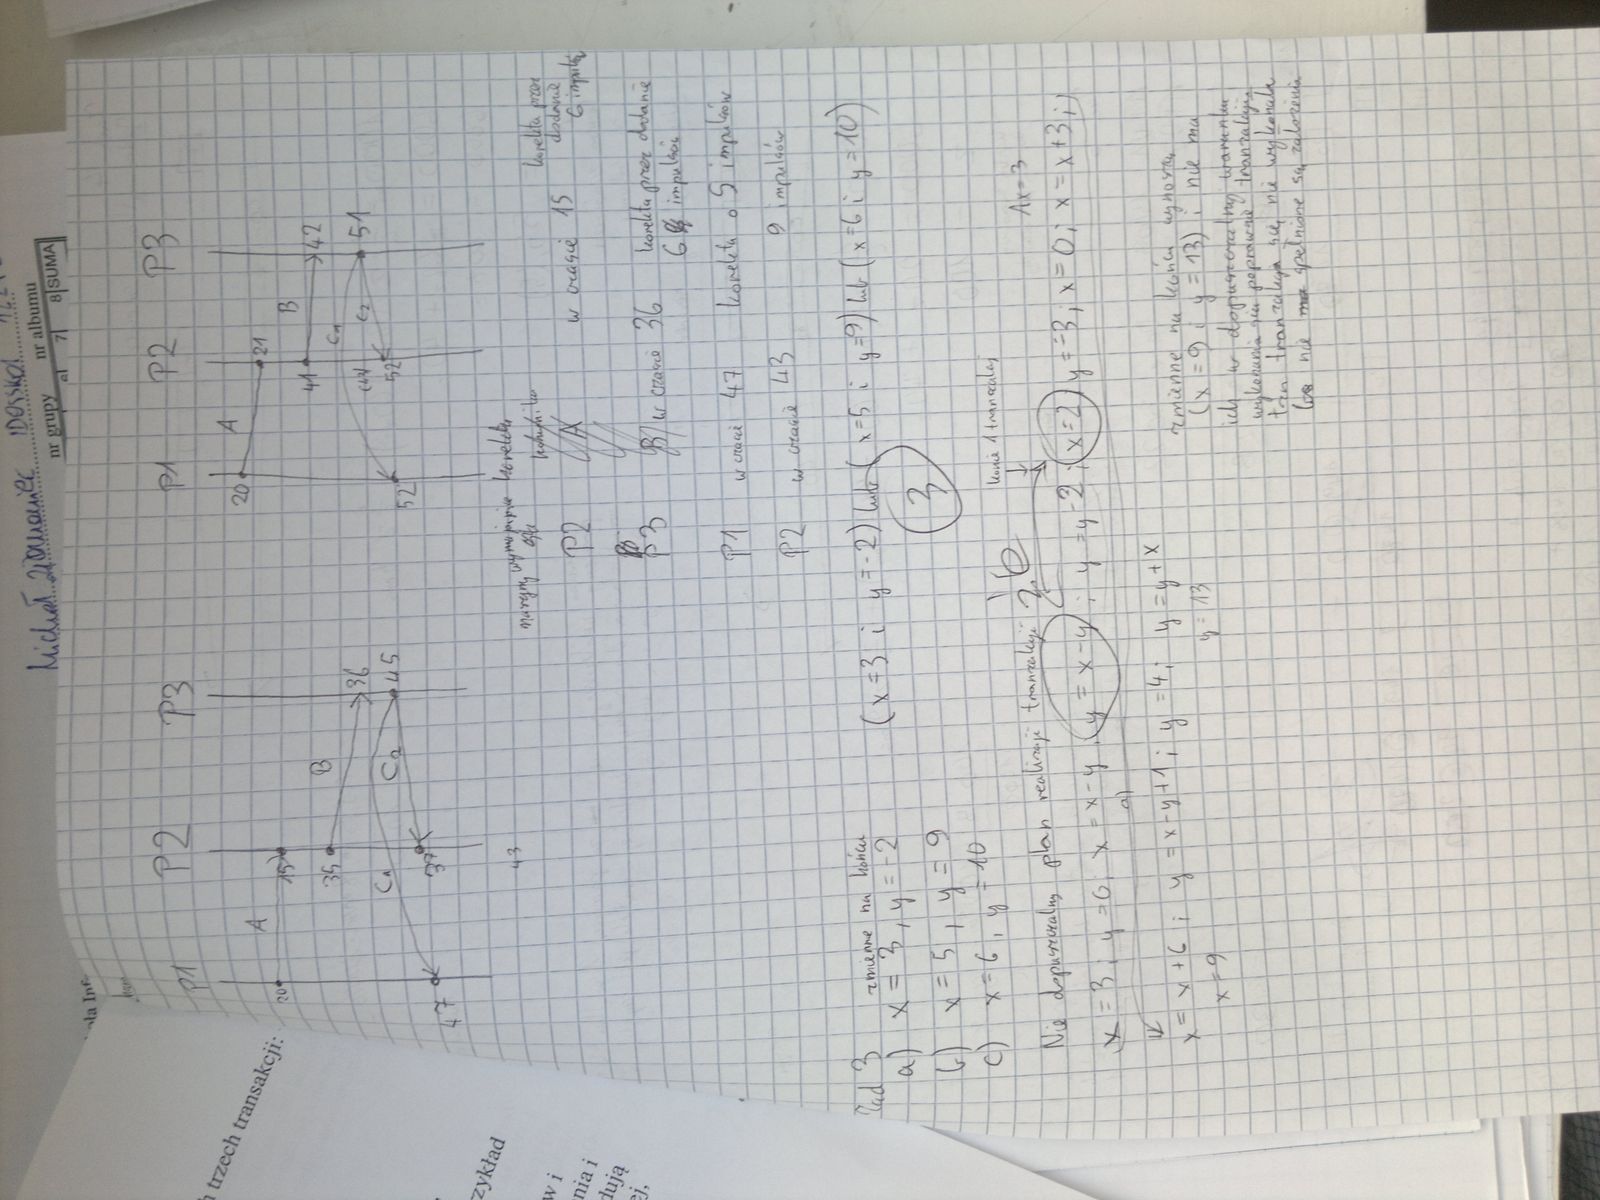 Michał
nr grupy nr albumu
7 8 SUMA
trzech transakcji:
P1 P2 P3
20 A 15
35 B 36
C1 C2 45
47 37
43
P1 P2 P3
20 A 21
41 B 42
C1 C2 51
52 52
korekta
P2 A w czasie 15 korekta przez dodanie 6 impulsów
P3 B w czasie 36 korekta przez dodanie
6 impulsów
P1 w czasie 47 korekta o 5 impulsów
P2 w czasie 43 9 impulsów
zykład
w i
nia i
dują
ej,
Zad 3 zmienne na końcu
a) x = 3, y = -2
(x=3 i y=-2) lub (x=5 i y=9) lub (x=6 i y=10)
3
b) x = 5, y = 9
c) x = 6, y = 10
Nie dopuszczalny plan realizacji tranzakcji
konic 1 tranzakcji
x = 3; y = 0; x = x-y; y = x-y; y = y-2; x = 2; y = -3; x = 0; x = x+3;
a)
x = x+6; y = x-y+1; y = 4; y = y+x
x = 9
y = 13
zmienne na końcu wynoszą
(x = 9 i y = 13) i nie ma
ich w dopuszczalny warunku
wykonania się poprawnie tranzakcji
tranzakcja się nie wykonała
nie spełnione są założenia